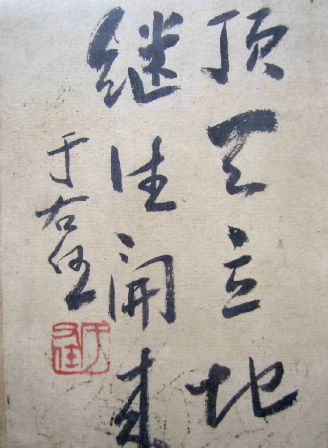 顶天立地
继往开来
于右任
右任